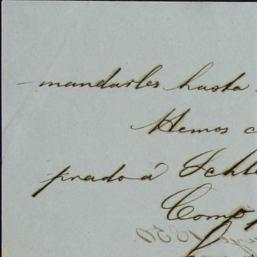 mandarles hasta
Hemos c
prado á Schl
Como